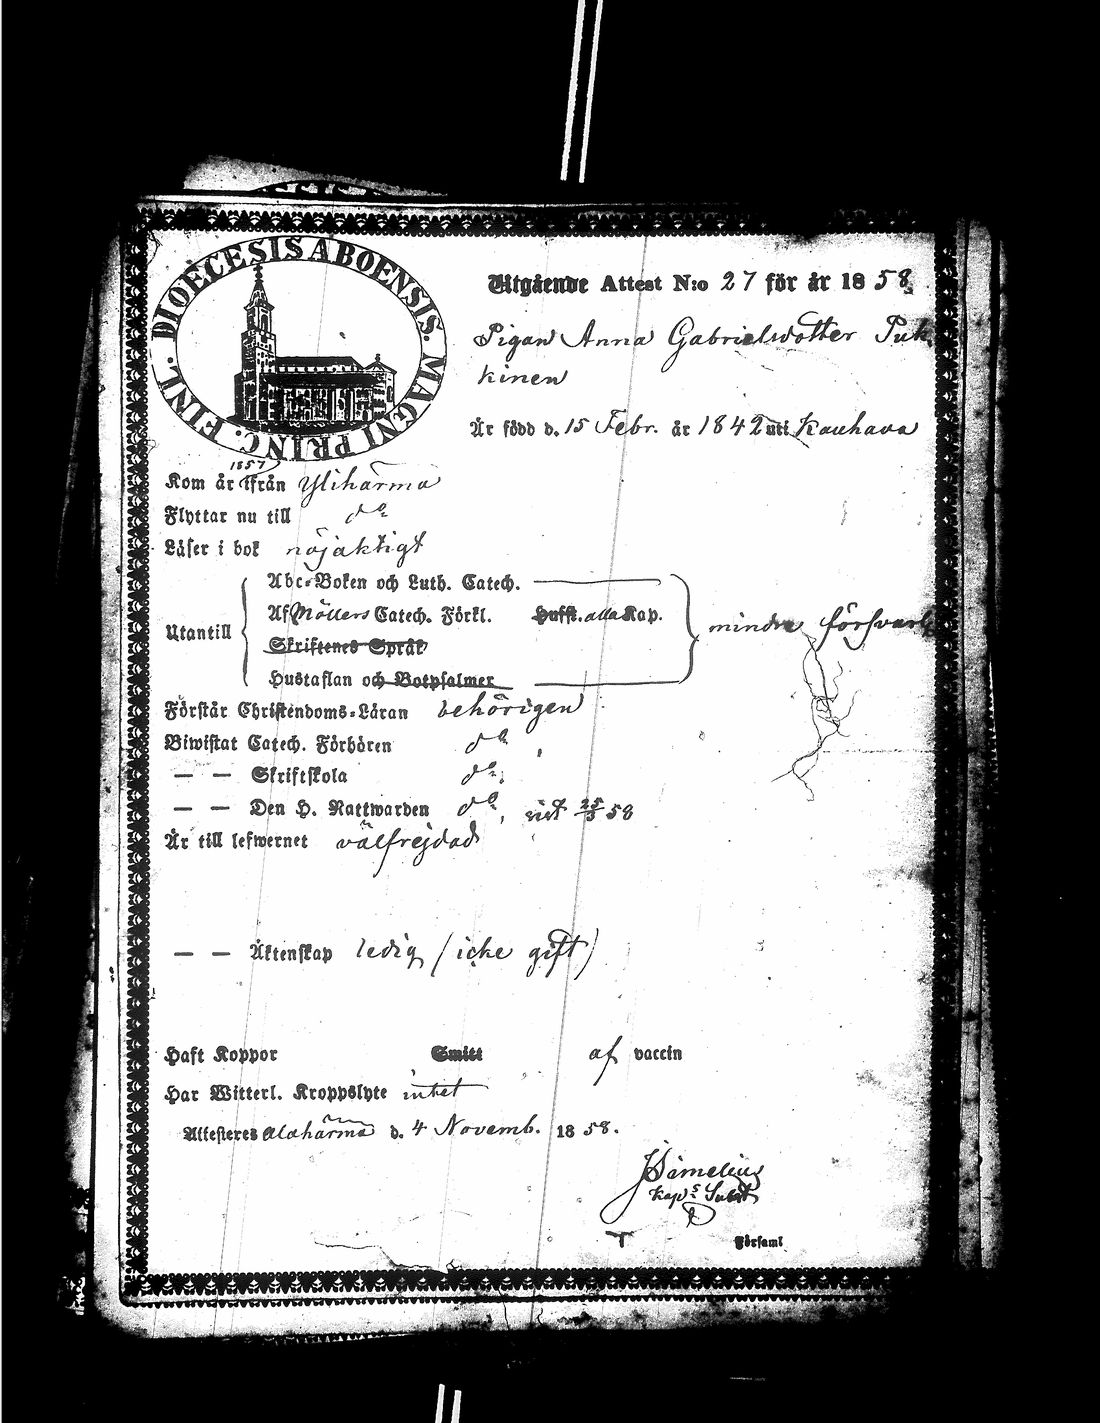 DIOECESIS ABOENSIS. MAGNI PRINC. FINL.
Utgående Attest N:o 27 för år 1858.
Pigan Anna Gabrielsdotter Puk
kinen
Är född d. 15 Febr. år 1842 uti Kauhava
1857
Kom år ifrån Ylihärmä
Flyttar nu till do
Läser i bok nöjaktigt
Utantill
Abc-Boken och Luth. Catech.
Af Möllers Catech. Förkl. Husft. alla Kap.
mindre försvarl
Skriftenes Språk
Hustaflan och Botpsalmer
Förstår Christendoms-Läran behörigen
Biwistat Catech. Förhören do
— — Skriftskola do
— — Den H. Nattwarden do, sist 25/5 58
Är till lefwernet välfrejdad
— — Äktenskap ledig (icke gift)
Haft Koppor Smitt af vaccin
Har Witterl. Kroppslyte intet
Attesteres Alahärmä d. 4 Novemb. 1858.
Kaps Subst
Församl